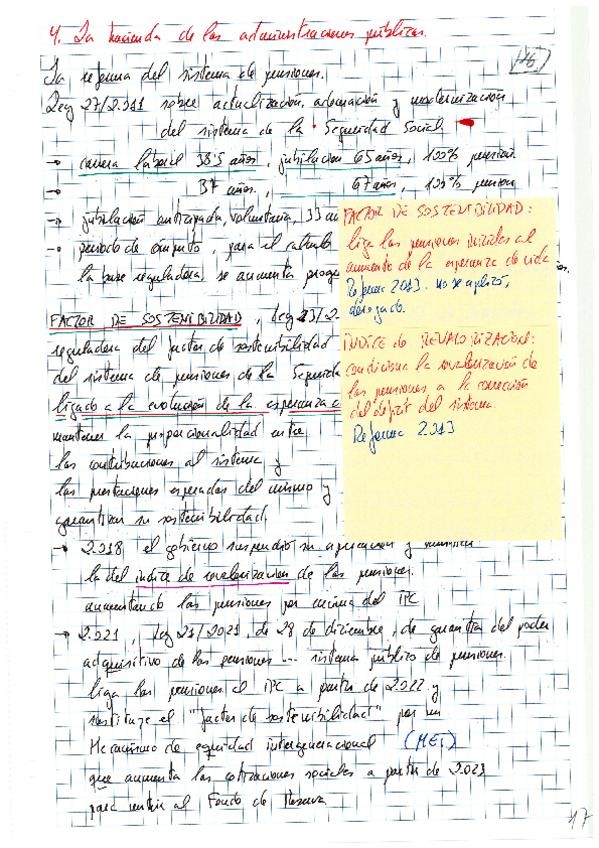 4. La hacienda de las administraciones públicas.
La reforma del sistema de pensiones.
Ley 27/2.011 sobre actualización, adecuación y modernización
del sistema de la Seguridad Social
→ carrera laboral 38'5 años, jubilación 65 años, 100% pensión.
→ 37 años, 67 años, 100% pension
→ jubilación anticipada, voluntaria, 33
→ periodo de computo, para el calculo
la base reguladora, se aumenta
FACTOR DE SOSTENIBILIDAD:
liga las pensiones iniciales al
aumento de la esperanza de vida
Reforma 2013. No se aplicó,
derogado.
INDICE de REVALORIZACION:
condiciona la revalorización de
las pensiones a la corrección
del déficit del sistema.
Reforma 2.013
FACTOR DE SOSTENIBILIDAD, Ley 23/2.
reguladora del factor de sostenibilidad
del sistema de pensiones de la
ligado a la evolución de la esperanza
mantener la proporcionalidad entre
las contribuciones al sistema y
las prestaciones esperadas del mismo y
garantizar su sostenibilidad.
→ 2.018 el gobierno suspendió su aplicación y
la del indice de revalorizacion de las pensiones.
aumentando las pensiones por encima del IPC
→ 2.021, Ley 21/2021, de 28 de diciembre, de garantía del poder
adquisitivo de las pensiones ... sistema público de pensiones.
liga las pensiones al IPC a partir de 2.022 y
sustituye el "factor de sostenibilidad" por un
Mecanismo de equidad intergeneracional (MEI)
que aumenta las cotizaciones sociales a partir de 2.023
para nutrir al Fondo de Reserva
17